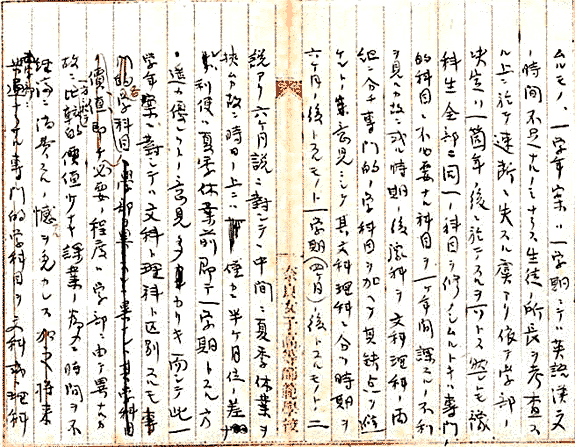 ムルモノ、一学年案ハ一学期ニテハ英語漢文
ノ時間不足ナルノミナラス生徒ノ所長ヲ考査ス
ル上ニ於テ速断ニ失スル虞アリ依テ学部ノ
決定ハ一箇年ノ後ニ於テスルヲ可トス然レモ豫
科生全部ニ同一ノ科目ヲ修メシムルトキハ専門
的科目ニ不必要ナル科目ヲ一ヶ年間課スルノ不利
ヲ見ルカ故ニ或ル時期ノ後豫科ヲ文科理科ノ両
組ニ分チ専門的ノ学科目ヲ加ヘテ其缺点ヲ
其文科理科ニ分ツ時期ヲ
六ヶ月ノ後トスルモノト一学期(四ヶ月)ノ後トスルモノトノ二
奈良女子高等師範學校
説アリ六ヶ月説ニ対シテハ中間ニ夏季休業ヲ
挟ム故ニ時日ノ上ニハ僅カニ半ヶ月位ノ差
利便ハ夏季休業前即チ一学期トスル方
遥カニ優レリトノ意見多カリキ而シテ此一
学年案ニ対シテハ文科ト理科ト区別スルモ専
門的学科目ハ 其学科目
ノ價値即チ必要ノ程度ハ学部ニ由テ異ナルカ
故ニ比較的價値少ナキ課業ノ為メニ時間ヲ不
経済ニ消費スルノ憾ヲ免カレス加之将来
共通ナラサル専門的学科目ヲ文科或ハ理科